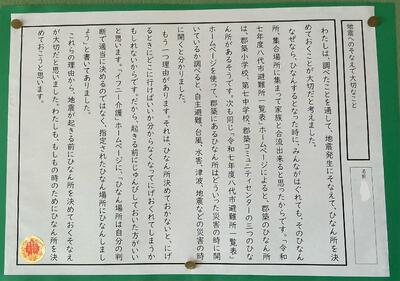 地震へのそなえで大切なこと
名前
わたしは、調べたことを通して、地震発生にそなえて、ひなん所を決
めておくことが大切だと考えました。
なぜなら、ひなんするとなった時に、みんながはぐれても、そのひなん
所、集合場所に集まって家族と合流出来ると思ったからです。「令和
七年度八代市避難所一覧表」ホームページによると、郡築のひなん所
は、郡築小学校、第七中学校、郡築コミュニティセンターの三つのひな
ん所があるそうです。次も同じ「令和七年度八代市避難所一覧表」
ホームページを使って、郡築にあるひなん所はどういった災害の時に開
いているか調べると、自主避難、台風、水害、津波、地震などの災害の時
に開くと分かりました。
もう一つ理由があります。それは、ひなん所決めておかないと、にげ
るときにどこに行けばいいか分からなくなってにげおくれてしまうか
もしれないからです。だから、起きる前にじゅんびしておいた方がいい
と思います。「イフニー介護」ホームページに、「ひなん場所は自分の判
断で適当に決めるのではなく、指定されたひなん場所にひなんしまし
ょう」と書いてありました。
これらの理由から、地震が起きる前にひなん所を決めておくそなえ
が大切だと思いました。わたしも、もしもの時のためにひなん所を決
めておこうと思います。